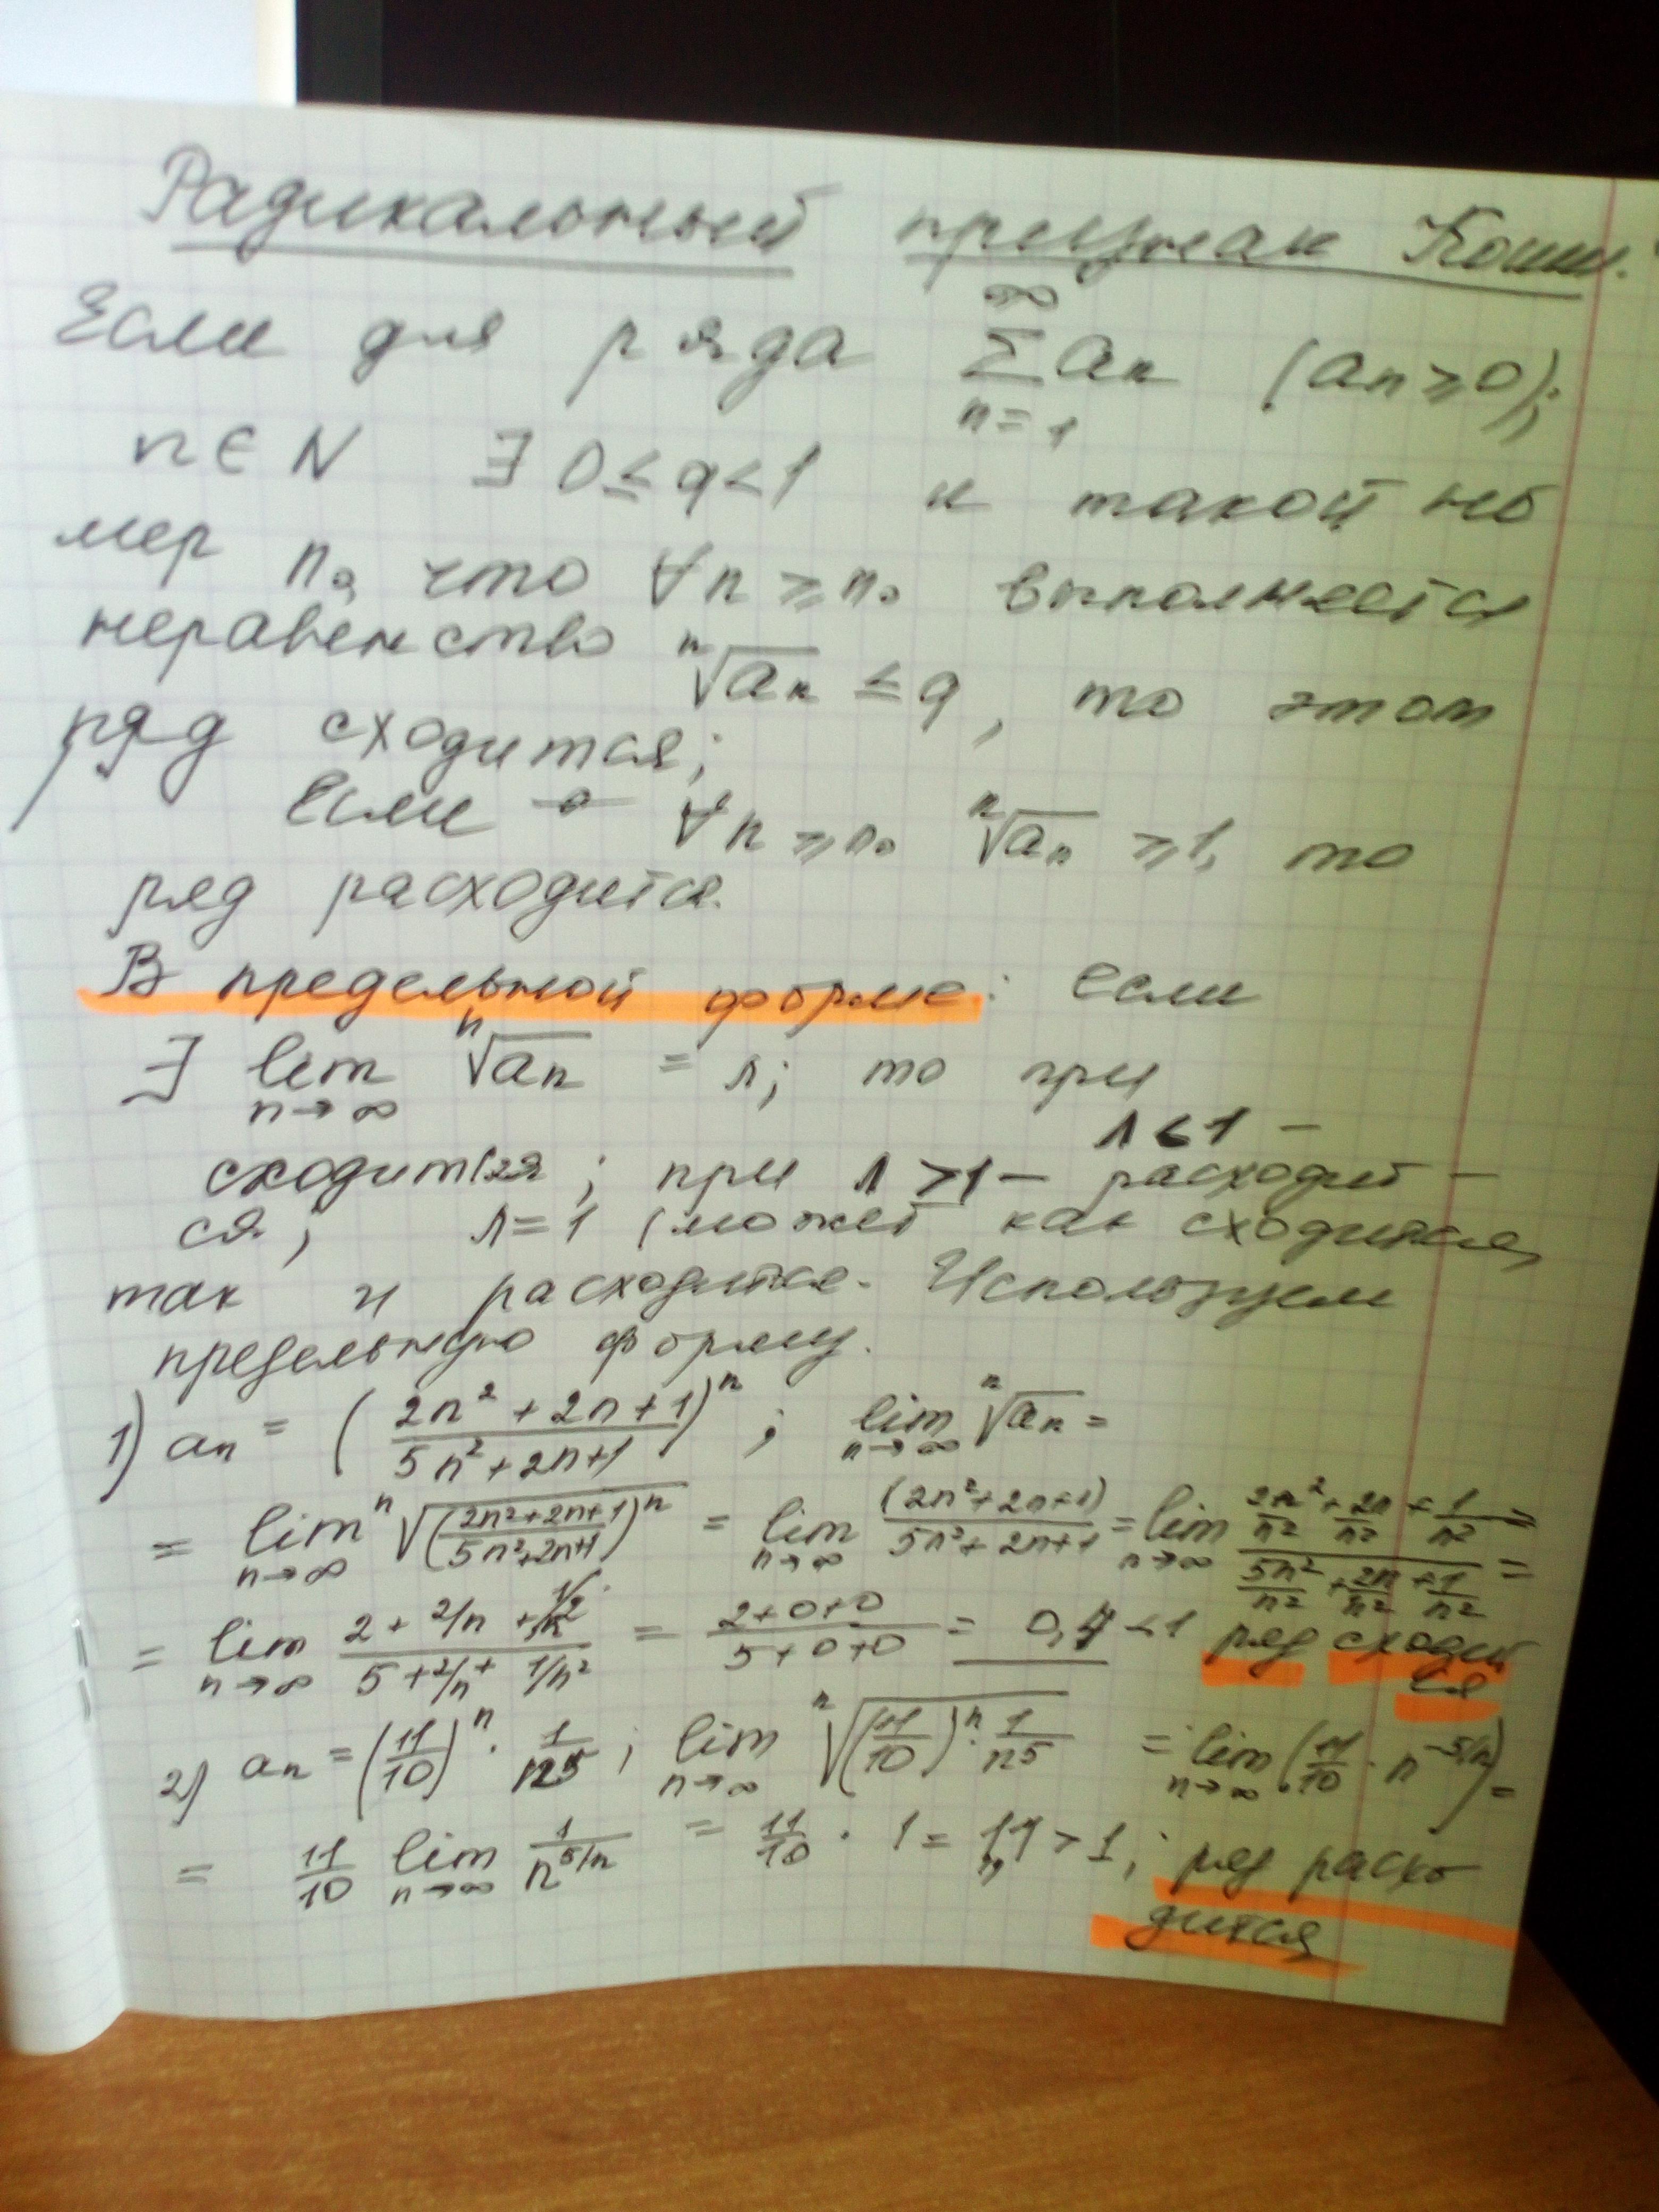 Радикальный признак Коши.
Если для ряда ∞ ∑ n=1 aₙ (aₙ ≥ 0);
n ∈ N ∃ 0 ≤ q < 1 и такой но
мер n₀, что ∀n ≥ n₀ выполняется
неравенство ⁿ√aₙ ≤ q, то этот
ряд сходится;
Если ∀n ≥ n₀ ⁿ√aₙ ≥ 1, то
ряд расходится.
В предельной форме: если
∃ lim n→∞ ⁿ√aₙ = λ; то при
λ < 1 –
сходится; при λ > 1 – расходит –
ся; λ = 1 (может как сходится,
так и расходится. Используем
предельную форму.
1) aₙ = ( (2n² + 2n + 1) / (5n² + 2n + 1) )ⁿ ; lim n→∞ ⁿ√aₙ =
= lim n→∞ ⁿ√( (2n² + 2n + 1) / (5n² + 2n + 1) )ⁿ = lim n→∞ (2n² + 2n + 1) / 5n² + 2n + 1 = lim n→∞ (2n²/n² + 2n/n² + 1/n²) / (5n²/n² + 2n/n² + 1/n²) =
= lim n→∞ (2 + 2/n + 1/n²) / (5 + 2/n + 1/n²) = (2+0+0) / (5+0+0) = 0,4 < 1 ряд сходит
ся
2) aₙ = (11/10)ⁿ · 1/n⁵ ; lim n→∞ ⁿ√(11/10)ⁿ · 1/n⁵ = lim n→∞ (11/10 · n^(-5/n)) =
= 11/10 lim n→∞ 1/n^(5/n) = 11/10 · 1 = 1,1 > 1; ряд расхо
дится